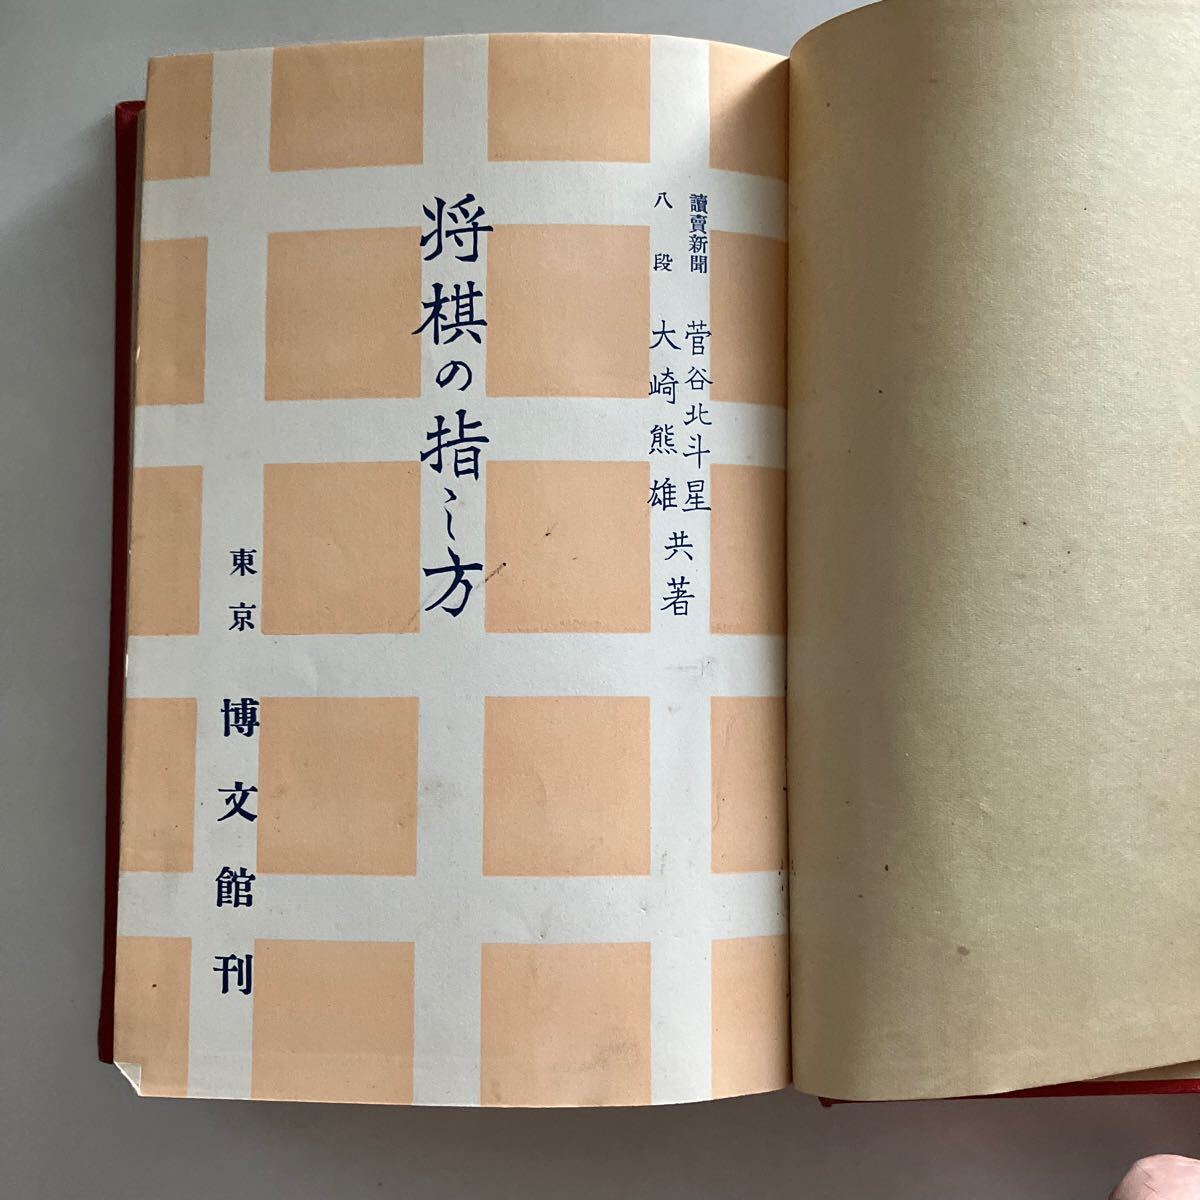 讀賣新聞 菅谷北斗星
八段 大崎熊雄
共著
将棋の指し方
東京 博文館刊